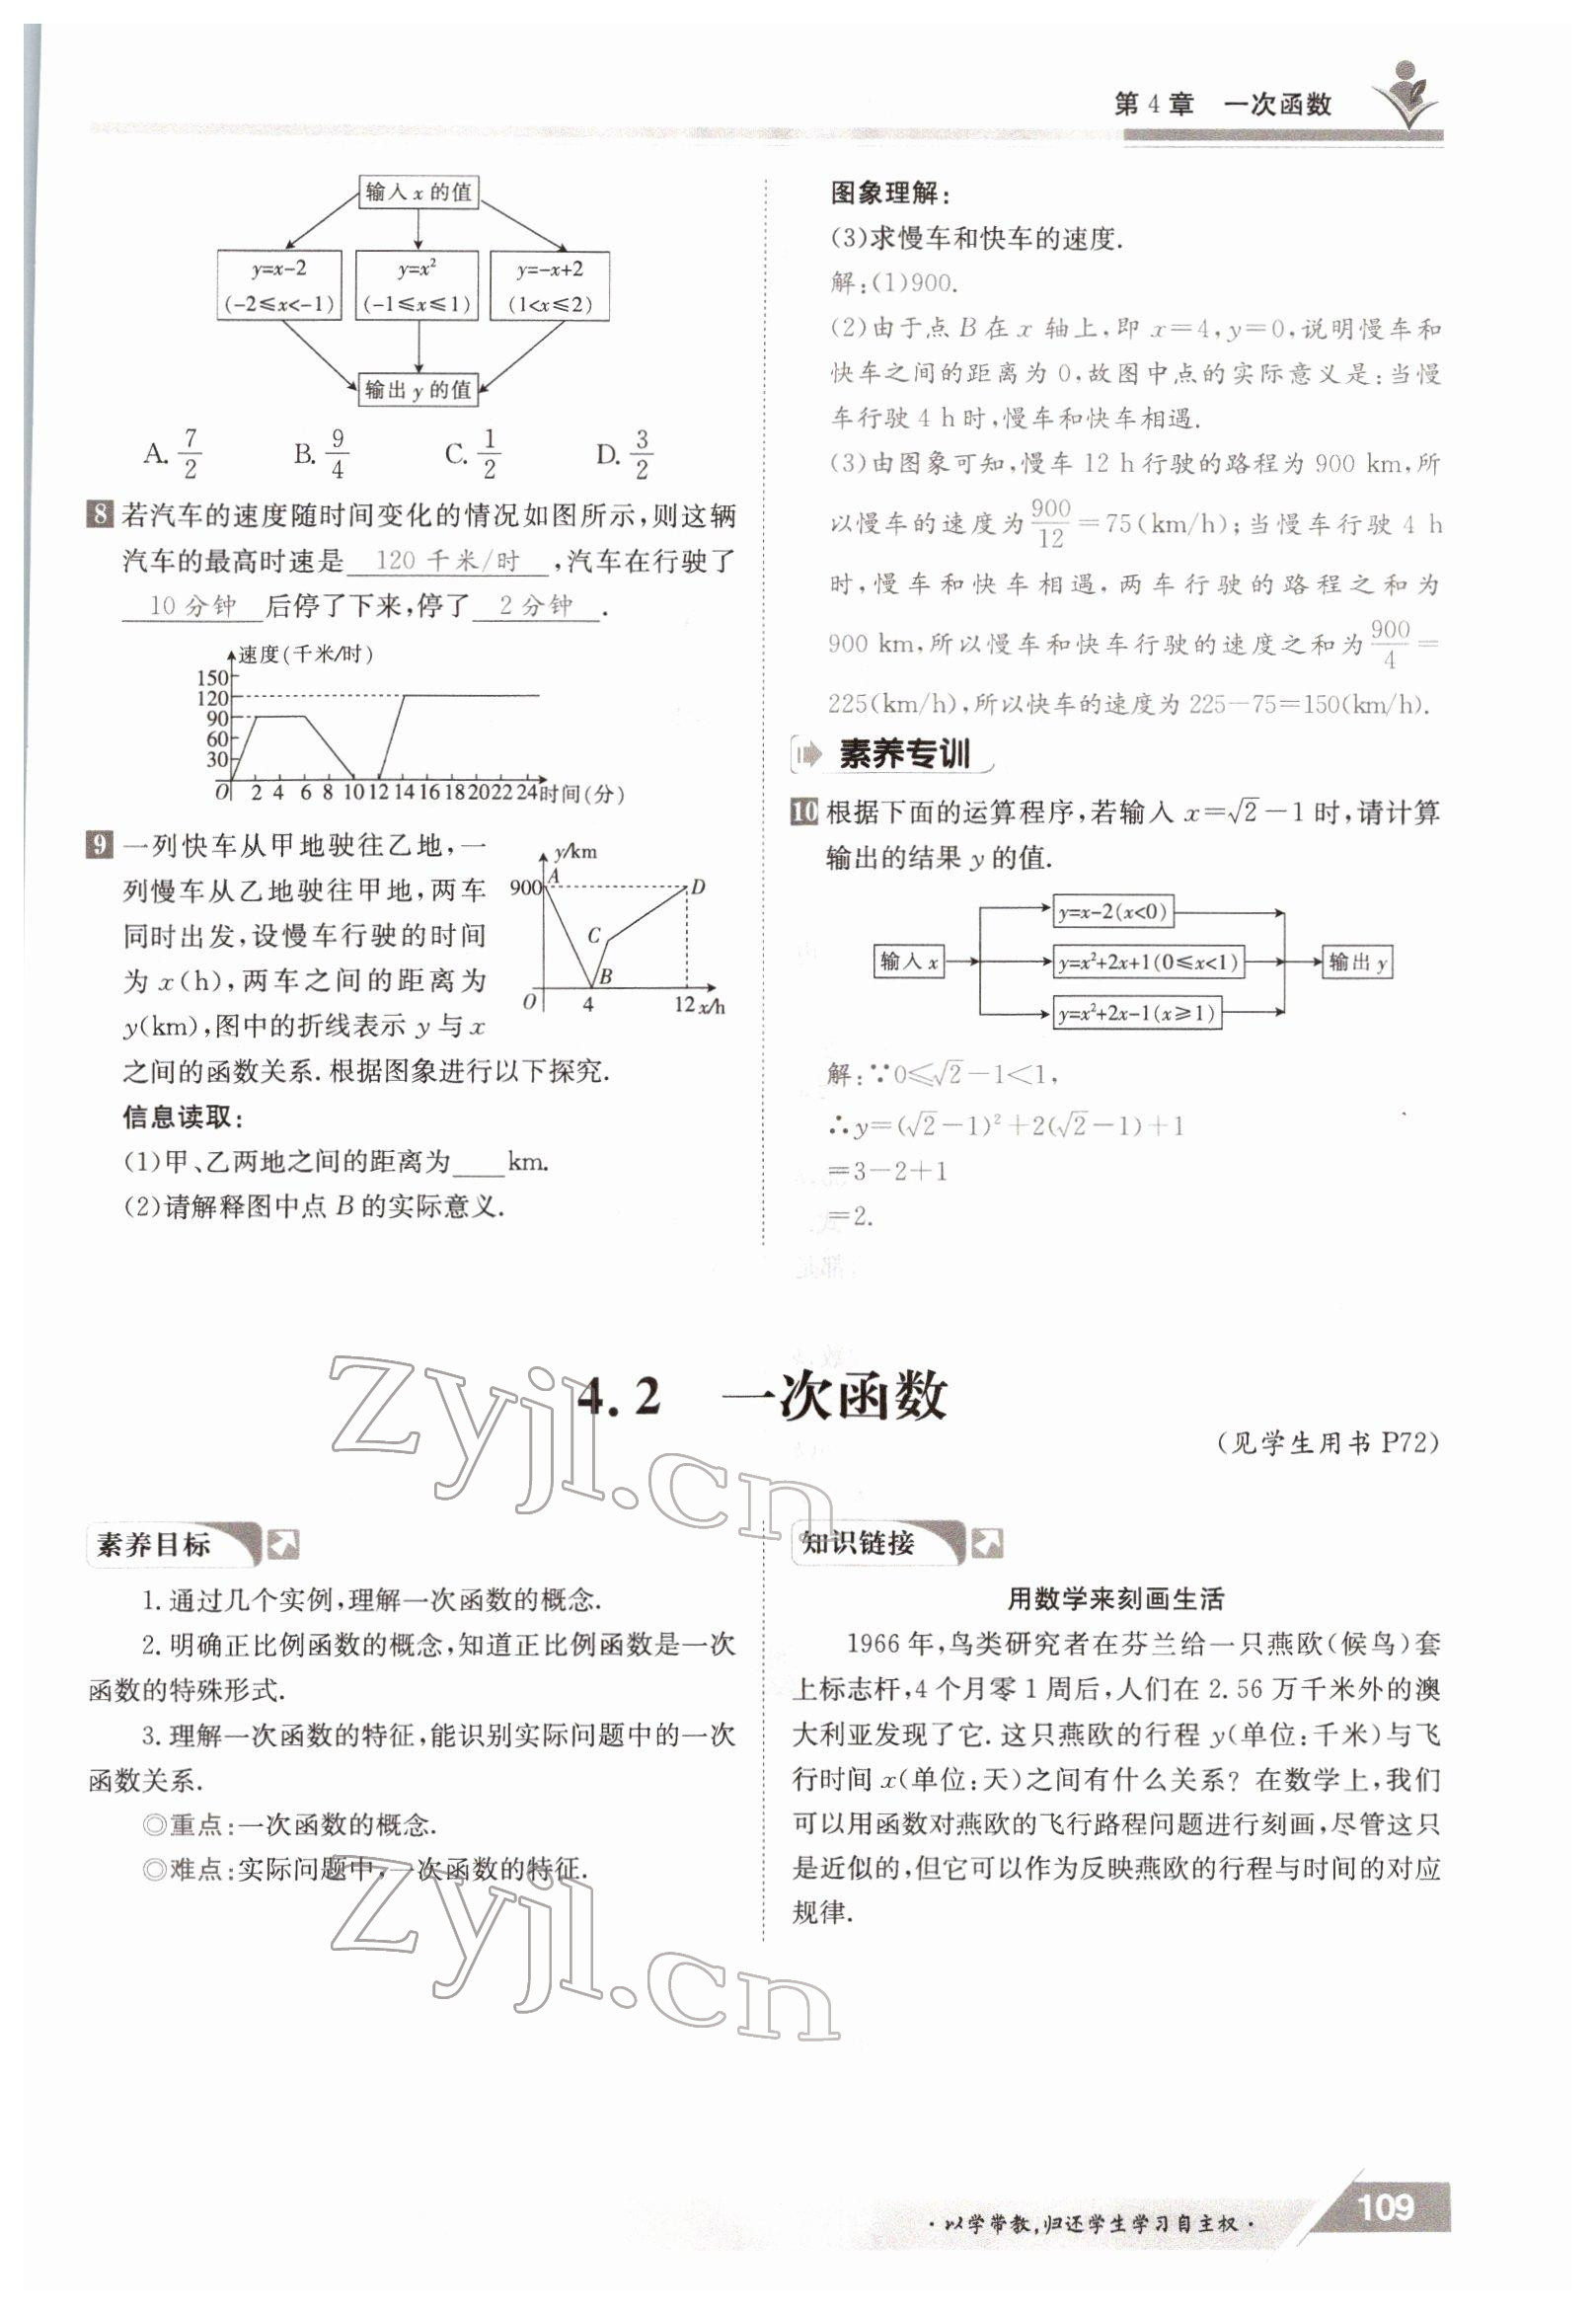 第 4 章 一次函数
输入 x 的值
y=x-2
(-2≤x<-1)
y=x²
(-1≤x≤1)
y=-x+2
(1<x≤2)
输出 y 的值
A. 7/2 B. 9/4 C. 1/2 D. 3/2
8 若汽车的速度随时间变化的情况如图所示,则这辆
汽车的最高时速是 120 千米/时 ,汽车在行驶了
10 分钟 后停了下来,停了 2 分钟 .
速度(千米/时)
150
120
90
60
30
O 2 4 6 8 10 12 14 16 18 20 22 24 时间(分)
9 一列快车从甲地驶往乙地,一
列慢车从乙地驶往甲地,两车
同时出发,设慢车行驶的时间
为 x(h),两车之间的距离为
y(km),图中的折线表示 y 与 x
之间的函数关系. 根据图象进行以下探究.
y/km
900
A
D
C
B
O 4 12 x/h
信息读取:
(1)甲、乙两地之间的距离为____km.
(2)请解释图中点 B 的实际意义.
图象理解:
(3)求慢车和快车的速度.
解:(1)900.
(2)由于点 B 在 x 轴上,即 x=4,y=0,说明慢车和
快车之间的距离为 0,故图中点的实际意义是:当慢
车行驶 4 h 时,慢车和快车相遇.
(3)由图象可知,慢车 12 h 行驶的路程为 900 km,所
以慢车的速度为 900/12=75(km/h);当慢车行驶 4 h
时,慢车和快车相遇,两车行驶的路程之和为
900 km,所以慢车和快车行驶的速度之和为 900/4=
225(km/h),所以快车的速度为 225-75=150(km/h).
素养专训
10 根据下面的运算程序,若输入 x=√2-1 时,请计算
输出的结果 y 的值.
输入 x
y=x-2(x<0)
y=x²+2x+1(0≤x<1)
y=x²+2x-1(x≥1)
输出 y
解:∵0≤√2-1<1,
∴y=(√2-1)²+2(√2-1)+1
=3-2+1
=2.
4.2 一次函数
(见学生用书 P72)
素养目标
1. 通过几个实例,理解一次函数的概念.
2. 明确正比例函数的概念,知道正比例函数是一次
函数的特殊形式.
3. 理解一次函数的特征,能识别实际问题中的一次
函数关系.
◎重点:一次函数的概念.
◎难点:实际问题中,一次函数的特征.
知识链接
用数学来刻画生活
1966 年,鸟类研究者在芬兰给一只燕欧(候鸟)套
上标志杆,4 个月零 1 周后,人们在 2.56 万千米外的澳
大利亚发现了它. 这只燕欧的行程 y(单位:千米)与飞
行时间 x(单位:天)之间有什么关系? 在数学上,我们
可以用函数对燕欧的飞行路程问题进行刻画,尽管这只
是近似的,但它可以作为反映燕欧的行程与时间的对应
规律.
zyjl.cn
zyjl.cn
·以学带教,归还学生学习自主权·
109